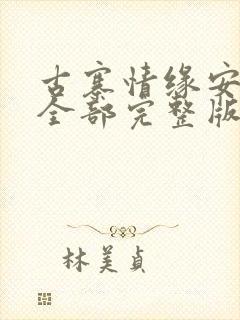 古寨情缘安
全部完整版
林美贞